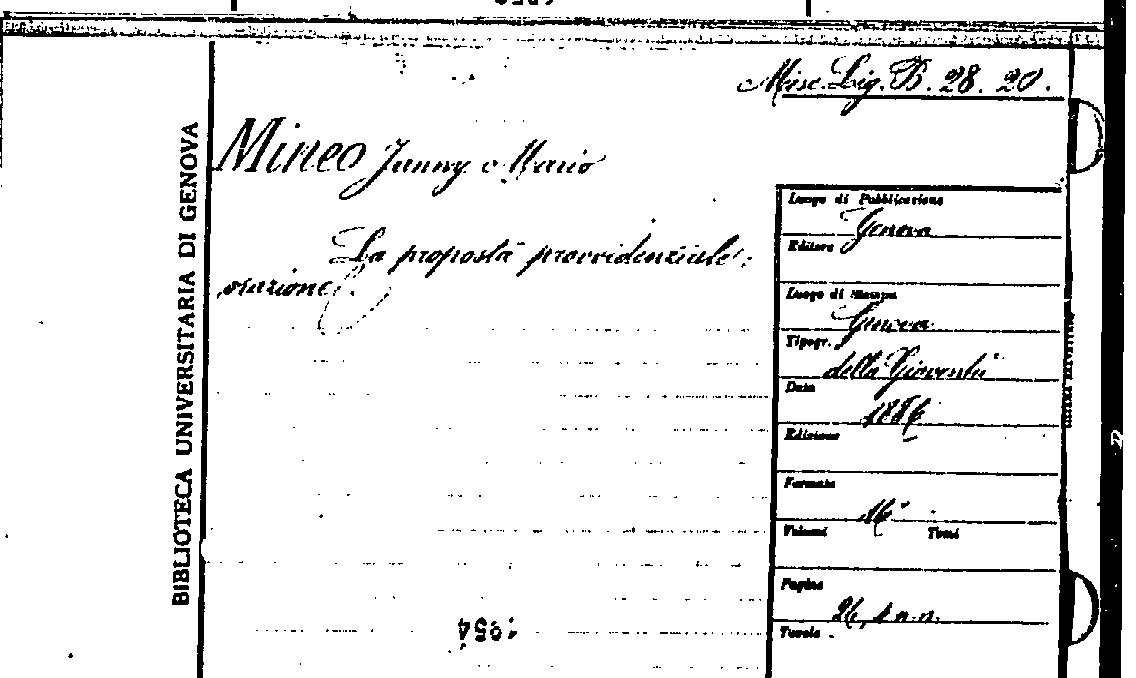 Misc. Lig. B. 28. 20.
Mineo Janny e Mario
La proposta provvidenziale:
orazione.
BIBLIOTECA UNIVERSITARIA DI GENOVA
Luogo di Pubblicazione
Genova
Editore
Luogo di Stampa
Genova
Tipogr.
della Gioventù
Data
1886
Edizione
Formato
16°
Volumi Tomi
Pagine
26, 1 n.n.
Tavole
1954